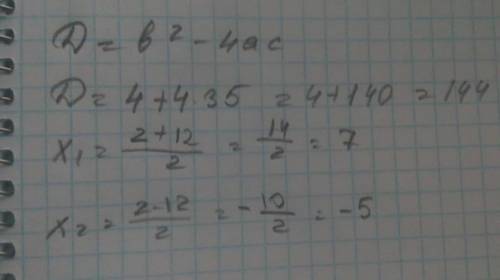 D = b² - 4ac
D = 4 + 4·35 = 4 + 140 = 144
x₁ = (2 + 12)/2 = 14/2 = 7
x₂ = (2 - 12)/2 = -10/2 = -5